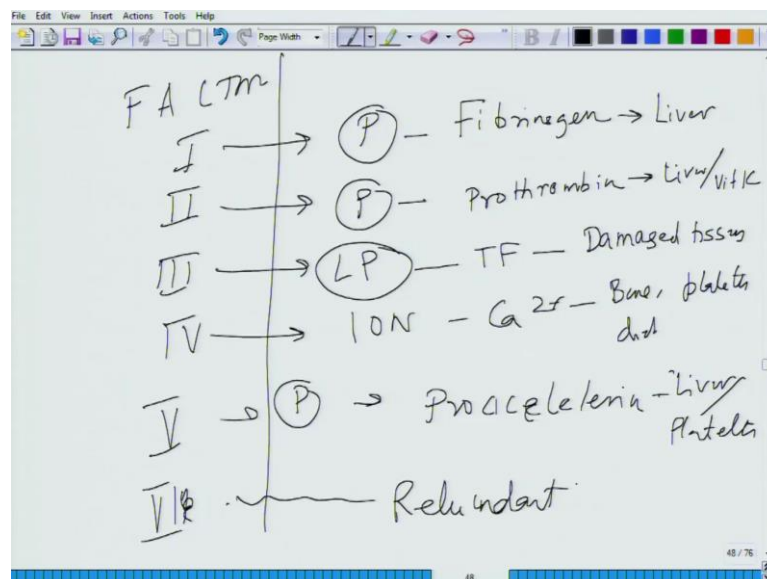 File Edit View Insert Actions Tools Help
Page Width
B I
FACTOR
I → P — Fibrinogen → Liver
II → P — Prothrombin → Liver/Vit K
III → LP — TF — Damaged tissues
IV → ION — Ca 2+ — Bone, platelets
diet
V → P → Procaccelelerin - Liver/
Platelets
VI — Redundant
48 / 76
48